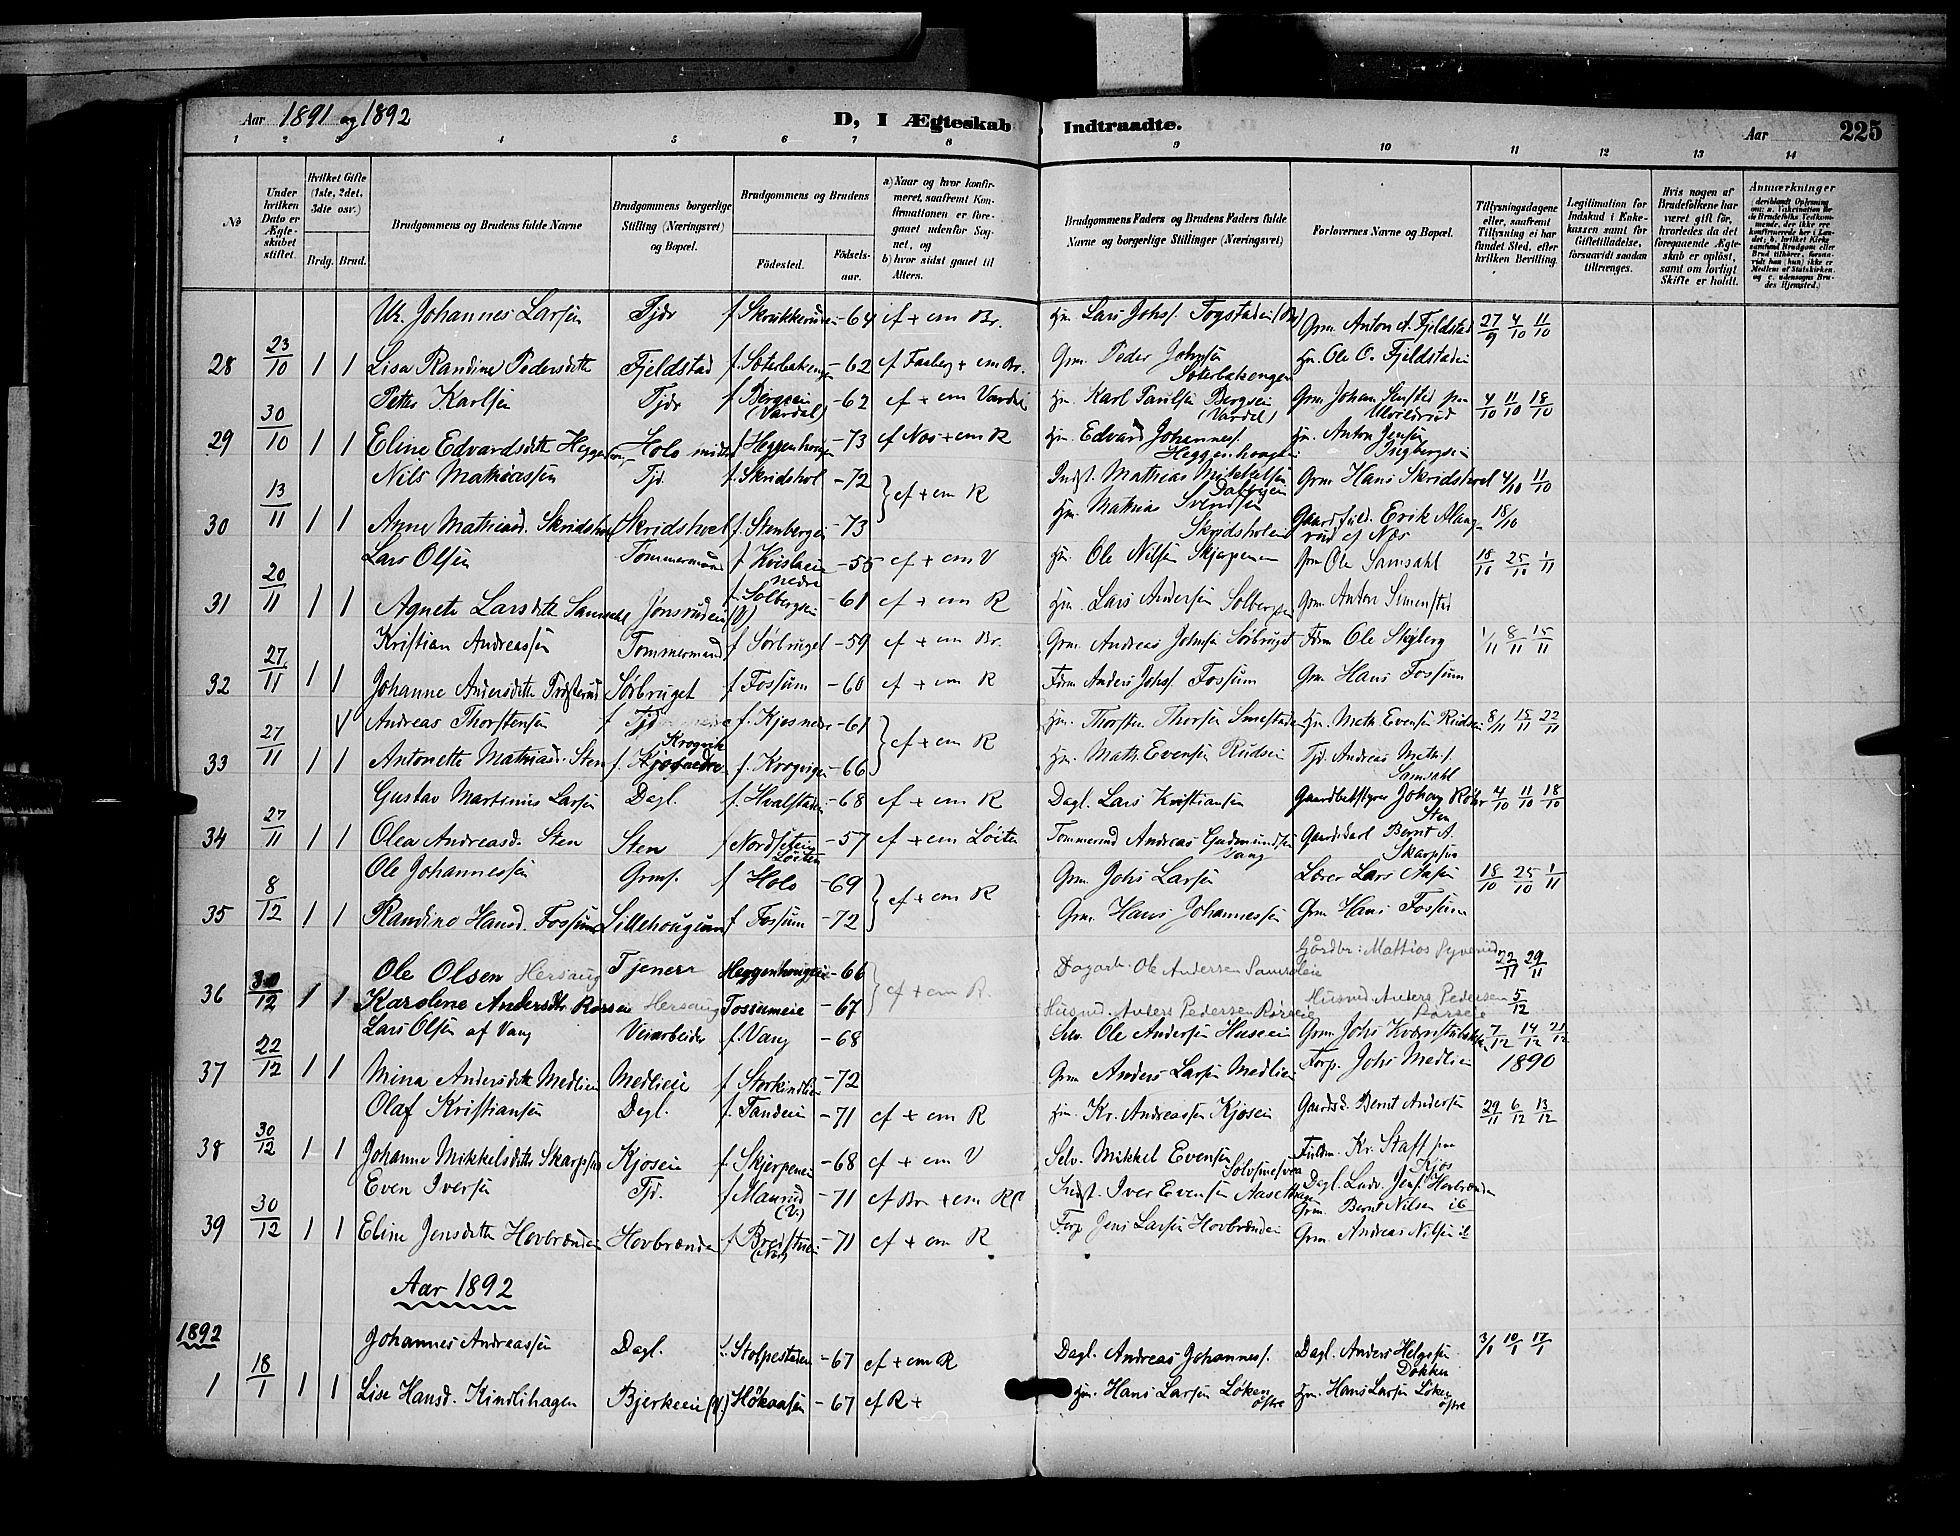 Aar 1891 og 1892
D, I Ægteskab Indtraadte.
Aar
225
1 2 3 4 5 6 7 8 9 10 11 12 13 14
№
Under hvilken Dato er Ægteskabet stiftet.
Hvilket Gifte (1ste, 2det, 3die osv.)
Brdg. Brud.
Brudgommens og Brudens fulde Navne
Brudgommens borgerlige Stilling (Næringsvei) og Bopæl.
Brudgommens og Brudens
Fødested.
Fødselsaar.
a) Naar og hvor konfirmeret, saafremt Konfirmationen er foregaaet udenfor Sognet, og
b) hvor sidst gaaet til Alters.
Brudgommens Faders og Brudens Faders fulde Navne og borgerlige Stillinger (Næringsvei)
Forlovernes Navne og Bopæl.
Tillysningsdagene eller, saafremt Tillysning ei har fundet Sted, efter hvilken Bevilling.
Legitimation for Indskud i Enkekassen samt for Giftetilladelse, forsaavidt saadan tiltrenges.
Hvis nogen af Brudefolkene har været gift før, hvorledes da det foregaaende Ægteskab er opløst, samt om lovligt Skifte er holdt.
Anmærkninger
Uk. Johannes Larsen Tjdr f Skrukkerud -64 cf + em Br. Hm. Lars Johs. Togstaden Grm Anton A. Fjeldstad 27/9 4/10 11/10
28 23/10 1 1 Lise Randine Pedersdtt Fjeldstad f. Sæterbakengen -62 cf Faaberg + em Br. Grm. Peder Johnsen Sæterbakengen Hm. Ole O. Fjeldstadeie
Petter Karlsen Tjdr f Bergseie (Vardal) -62 cf + em Vardal Hm. Karl Paulsen Bergseie (Vardal) Grm Johan 4/10 11/10 18/10
29 30/10 1 1 Eline Edvardsdtt Heggen Holo f Heggenhougen -73 cf Næs + em R Hm. Edvard Johannes. Heggenhaugen Hm. Anton Jensen Ingbergseie
Nils Mathiassen Tjd f. Skridshol -72 } cf + em R Indst. Mathias Mikkelsen Grm Hans Skridshol 4/10 11/10
30 13/11 1 1 Anne Mathiasd. Skridshol Skridshol f. Stenbergeie -73 Hm. Mathias Svendsen Skridsholeie Erik af Næs 18/10
Lars Olsen Tømmermand f Kvislseie nedre -55 cf + em V Hm. Ole Nilsen Skjæpen Grm Ole Samsahl 18/10 25/10 1/11
31 20/11 1 1 Agnete Larsdtt Samsahl Jonsrudeie (V) f. Solbergseie -61 cf + em R Hm. Lars Andersen Solbergseie Grm. Anton Simenstad
Kristian Andreassen Tømmermand f Sørbruget -59 cf + em Br. Grm. Andreas Johnsen Sørbruget Fdrm Ole Stigberg 1/11 8/11 15/11
32 27/11 1 1 Johanne Andersdtt Prøsterud Sørbruget f Fossum -60 cf + em R Fdrm Anders Johs. Fossum Grm. Hans Fossum
V Andreas Thorstensen f Tjd f. Kjos nedre -61 } cf + em R Hm. Thorsten Thorsen Smestaden Hm. Math. Evensen Rudseie 8/11 15/11 22/11
33 27/11 1 1 Antonette Mathiasd. Sten f. Krogvik f. Krogvigen -66 Hm. Math. Evensen Rudseie Tjd. Andreas Math. Samsahl
Gustav Martinius Larsen Dagl. f. Hvalstaden -68 cf + em R Dagl. Lars Kristiansen Gaardbestyrer Johan Sten 4/10 11/10 18/10
34 27/11 1 1 Olea Andreasd. Sten Sten f Nordseteng Løiten -57 cf + em Løiten Tømmermd Andreas Gudmundsen Vang Gaardskarl Bernt A. Skarpsno
Ole Johannessen Grms. f Holo -69 } cf + em R Grm. Johs Larsen Lærer Lars Aasen 18/10 25/10 1/11
35 8/12 1 1 Randine Hansd. Fossum Lillehougum f Fossum -72 Grm. Hans Johannessen Grm Hans Fossum
Ole Olsen Hersaug Tjener Heggenhougen -66 } cf + em R. Dagarb. Ole Andersen Samsaleie Gårdbr: Mattias Syverud 22/11 29/11
36 30/12 1 1 Karoline Andersdtr Rørseie Hersaug Fossumeie -67 Husmd. Anders Pedersen Rørseie Husmd Anders Pedersen Rørseie 5/12
Lars Olsen af Vang Veiarbeider f. Vang -68 Selv. Ole Andersen Huseeie Grm Johs Kværnstubakken 7/12 14/12 21/12
37 22/12 1 1 Mina Andersdtt Medlien Medlieie f Storkindlien -72 Grm Anders Larsen Medlien Forp. Johs Medlien 1890
Olaf Kristiansen Dagl. f. Tandeie -71 cf + em R Hm. Kr. Andreassen Kjoseie Gaardsd. Bernt Andersen 29/11 6/12 13/12
38 30/12 1 1 Johanne Mikkelsdtter Skarpsno Kjoseie f Skjerpeneie -68 cf + em V Selv. Mikkel Evensen Kr. Staff paa Kjos
Even Iversen Tjd. f Maurud (V.) -71 cf Br + em R Indst. Iver Evensen Aasethagen Dagl. Ludv. Jens. Hovbrænden Grm. Bernt Nilsen ib
39 30/12 1 1 Eline Jensdtt Hovbrænden Hovbrænden f Breistueie (Næs) -71 cf + em R Forp Jens Larsen Hovbrænden Grm. Andreas Nilsen ib
Aar 1892
1892
Johannes Andreassen Dagl. f. Stolpestaden -67 cf + em R Dagl. Andreas Johannes. Dagl. Anders Helgesen Dokken 3/1 10/1 17/1
1 18/1 1 1 Lise Hansd. Kindlihagen Bjerkeeie (V.) Høkaasen -67 cf R + Hm. Hans Larsen Løken østre Hm. Hans Larsen Løken østre